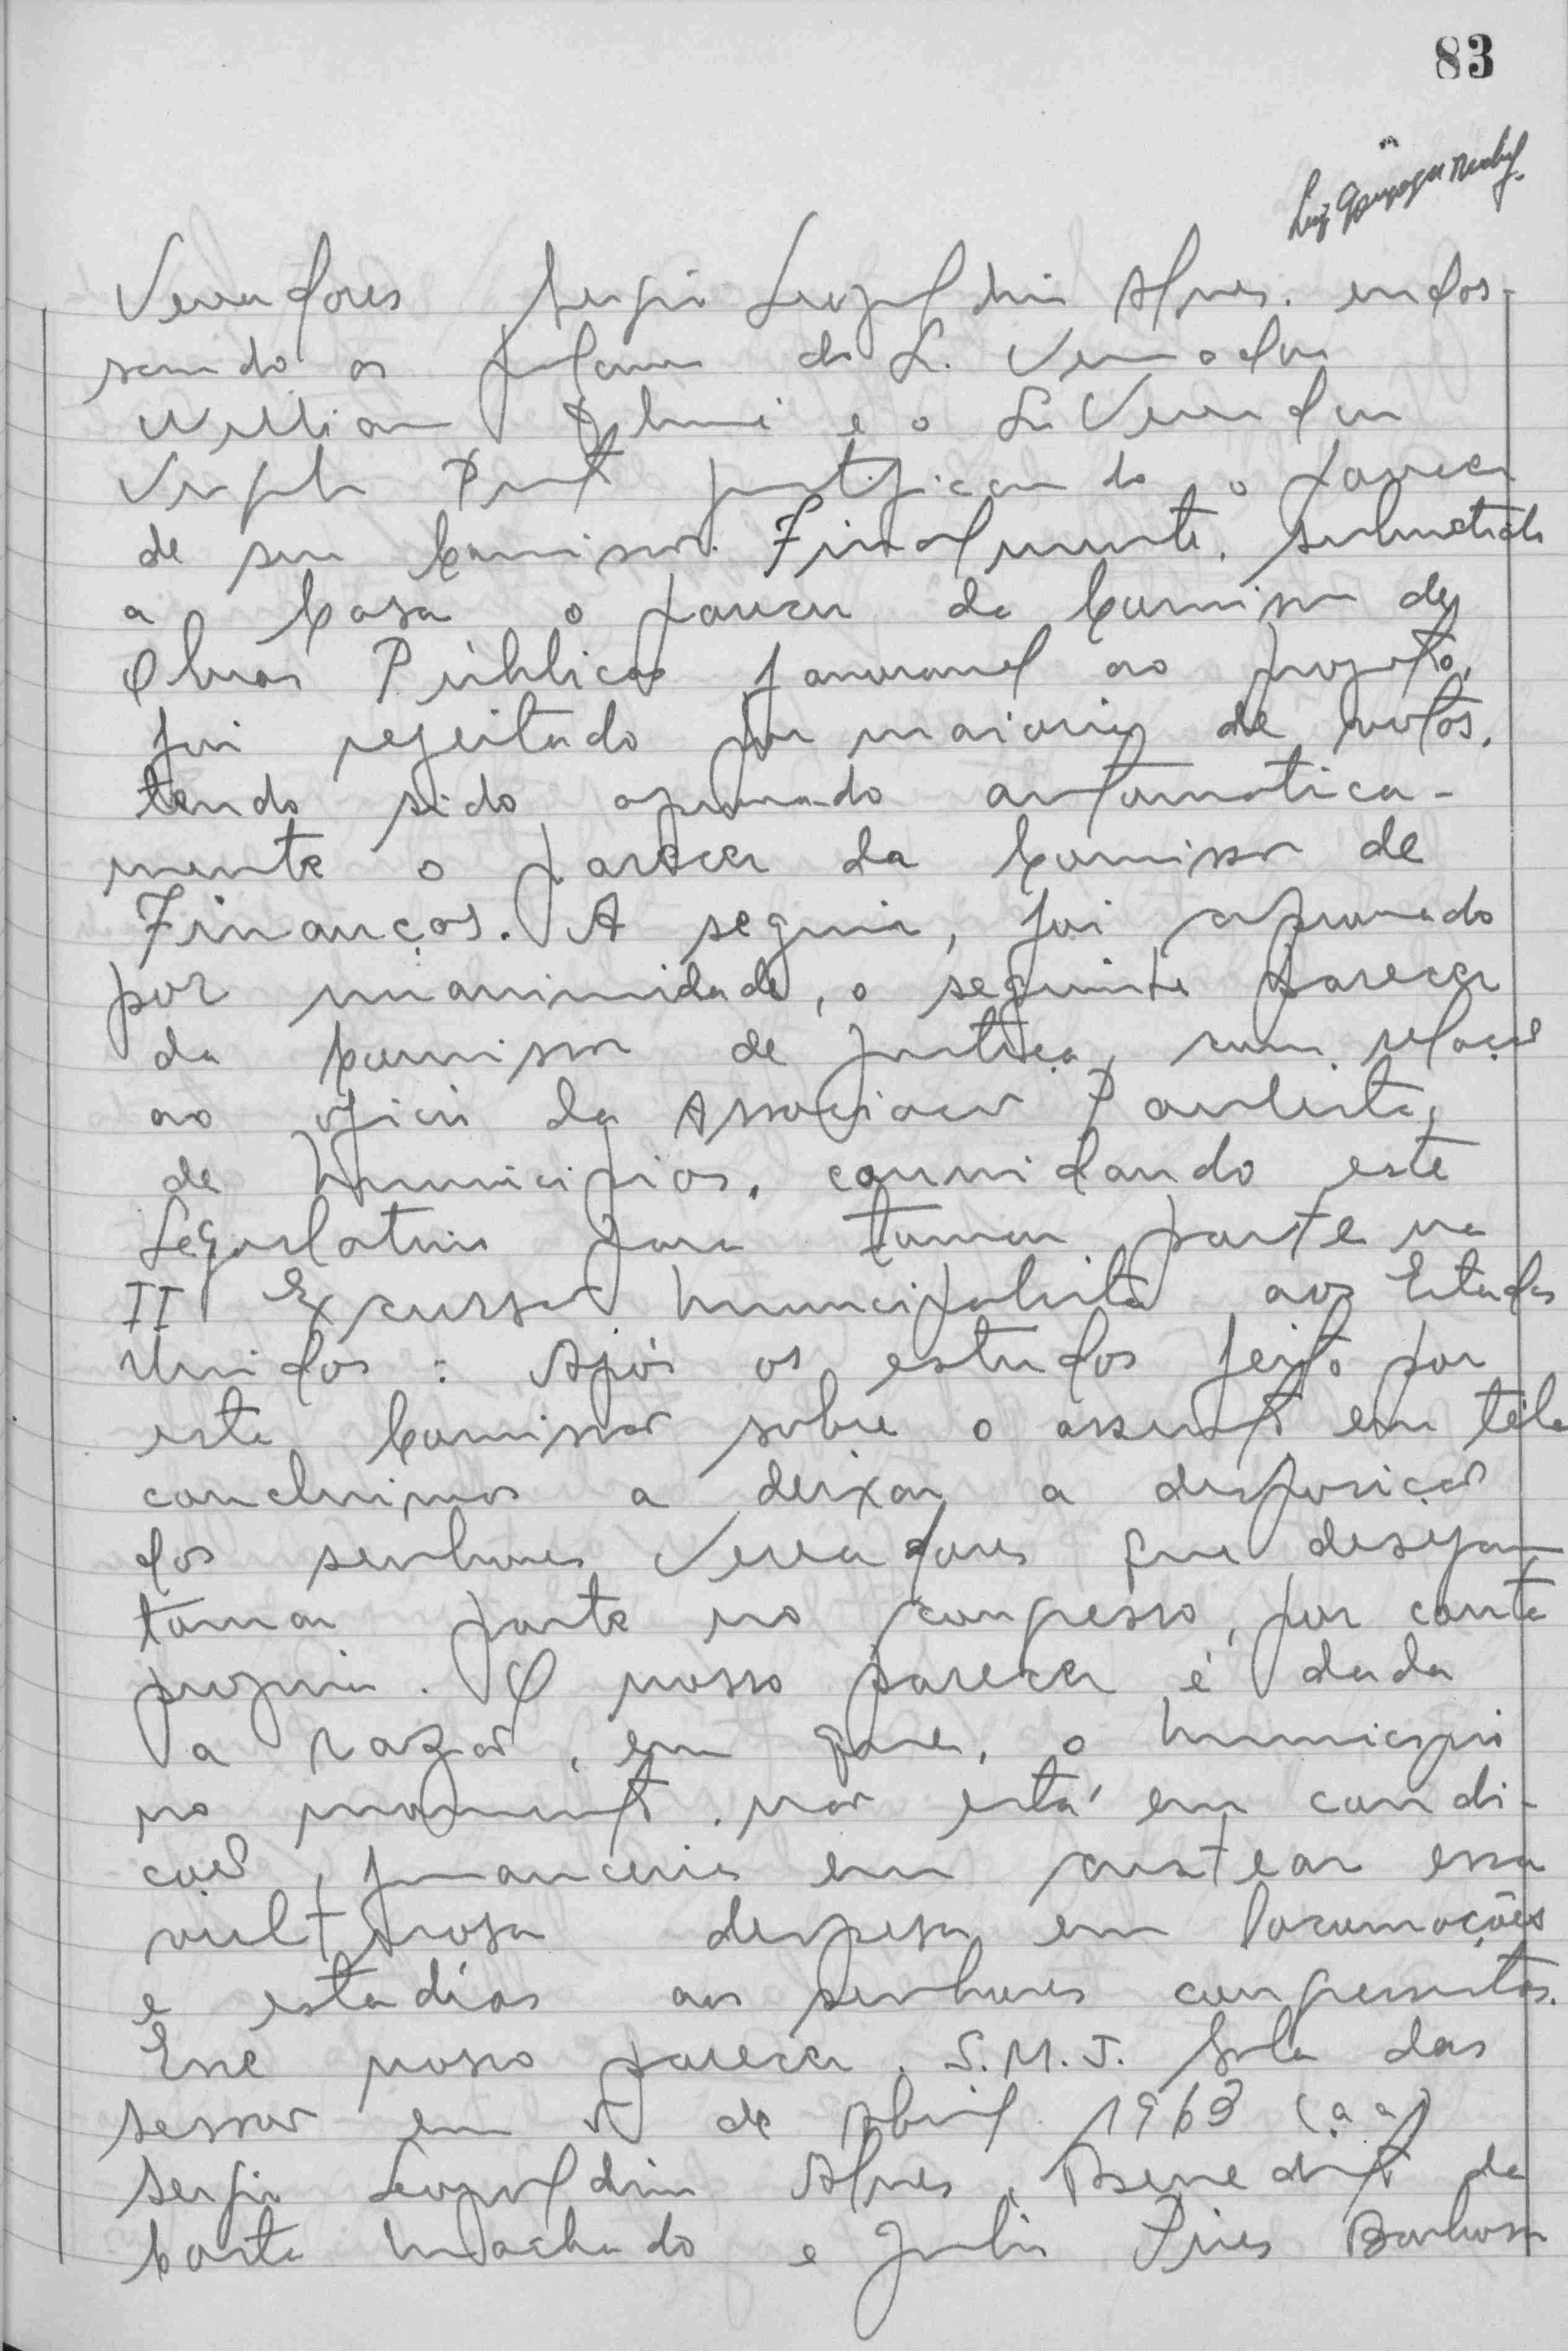 83
Luiz Gonzaga
Vereadores Sergio Leopoldino Alves. endos-
sando as palavras do S. Vereador
William e o Sr Vereador
justificando o parecer
de sua Comissão. Finalmente, submetido
a Casa o parecer da Comissão de
Obras Públicas favoravel ao projeto,
foi rejeitado por maioria de votos,
tendo sido aprovado automatica-
mente o parecer da Comissão de
Finanças. A seguir, foi aprovado
por unanimidade, o seguinte parecer
da Comissão de Justiça, com relação
ao oficio da Associacao Paulista
de Municipios, convidando este
Legislativo para tomar parte na
II Excursão Municipalista aos Estados
Unidos : Após os estudos feito por
esta Comissão sobre o assunto em téla
concluimos a deixar a disposição
dos senhores Vereadores que desejam
tomar parte no congresso, por conta
propria. O nosso parecer é dada
a razão, em que, o Municipio
no momento, não está em condi-
ções, financeira em custear essa
vultuosa despesa em locomoções
e estadias aos senhores congressistas.
Esse nosso parecer. S.M.J. Sala das
sessões em de Abril 1963 (a a)
Sergio Leopoldino Alves, Benedito da
Costa Machado e Julio Pires Barbosa